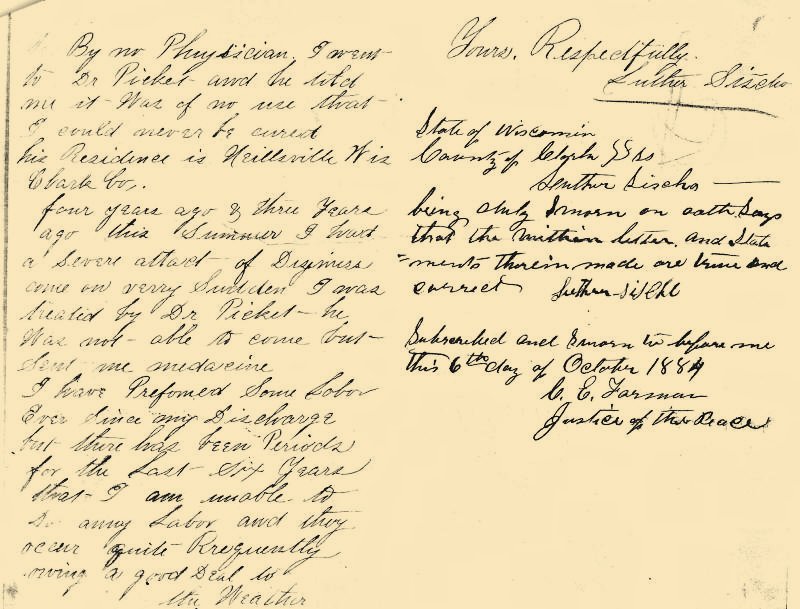 By no Physician, I went
to Dr Picket and he told
me it Was of no use that
I could never be cured
his Residence is Neillsville Wis
Clark Co.
four years ago & three Years
ago this Summer I had
a Severe attact of Diginiss
come on verry Sudden I was
treatid by Dr Picket he
Was not able to come but
Sent me medacine
I have Prefomed Some Labor
Ever Since my Discharge
but there has been Periods
for the Last Six Years
that I am unable to
Do anny Labor and they
occur quite Frequently
owing a good Deal to
the Weather
Yours, Respectfully.
Luther Sischo
State of Wisconsin
County of Clark } SS
Luther Sischo
being duly Sworn on oath Says
that the within letter, and State
=ments therein made are true and
correct Luther Sischo
Subscribed and Sworn to before me
this 6th day of October 1884
C. E. Forman
Justice of the Peace